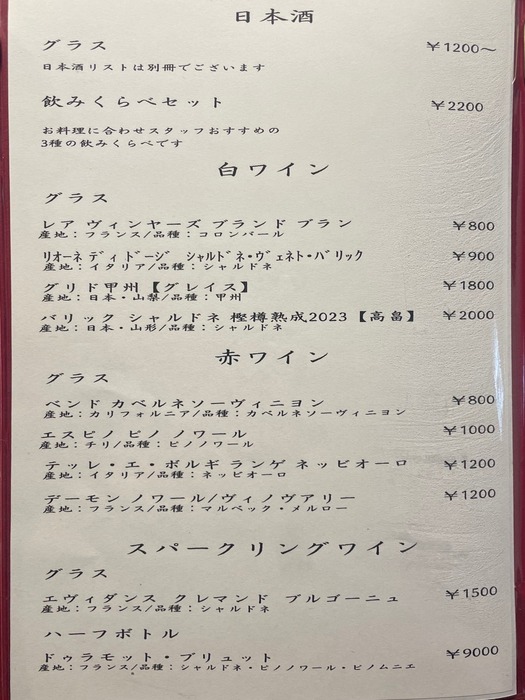 日本酒
グラス ￥1200～
日本酒リストは別冊でございます
飲みくらべセット ￥2200
お料理に合わせスタッフおすすめの
3種の飲みくらべです
白ワイン
グラス
レア ヴィンヤーズ ブランド ブラン ￥800
産地：フランス/品種：コロンバール
リオーネ ディ ドージェ シャルドネ・ヴェネト・バリック ￥900
産地：イタリア/品種：シャルドネ
グリド甲州【グレイス】 ￥1800
産地：日本・山梨/品種：甲州
バリック シャルドネ 樫樽熟成2023【高畠】 ￥2000
産地：日本・山形/品種：シャルドネ
赤ワイン
グラス
ベンド カベルネソーヴィニヨン ￥800
産地：カリフォルニア/品種：カベルネソーヴィニヨン
エスピノ ピノ ノワール ￥1000
産地：チリ/品種：ピノノワール
テッレ・エ・ボルギ ランゲ ネッビオーロ ￥1200
産地：イタリア/品種：ネッビオーロ
デーモン ノワール/ヴィノヴァリー ￥1200
産地：フランス/品種：マルベック・メルロー
スパークリングワイン
グラス
エヴィダンス クレマンド ブルゴーニュ ￥1500
産地：フランス/品種：シャルドネ
ハーフボトル
ドゥラモット・ブリュット ￥9000
産地：フランス/品種：シャルドネ・ピノノワール・ピノムニエ